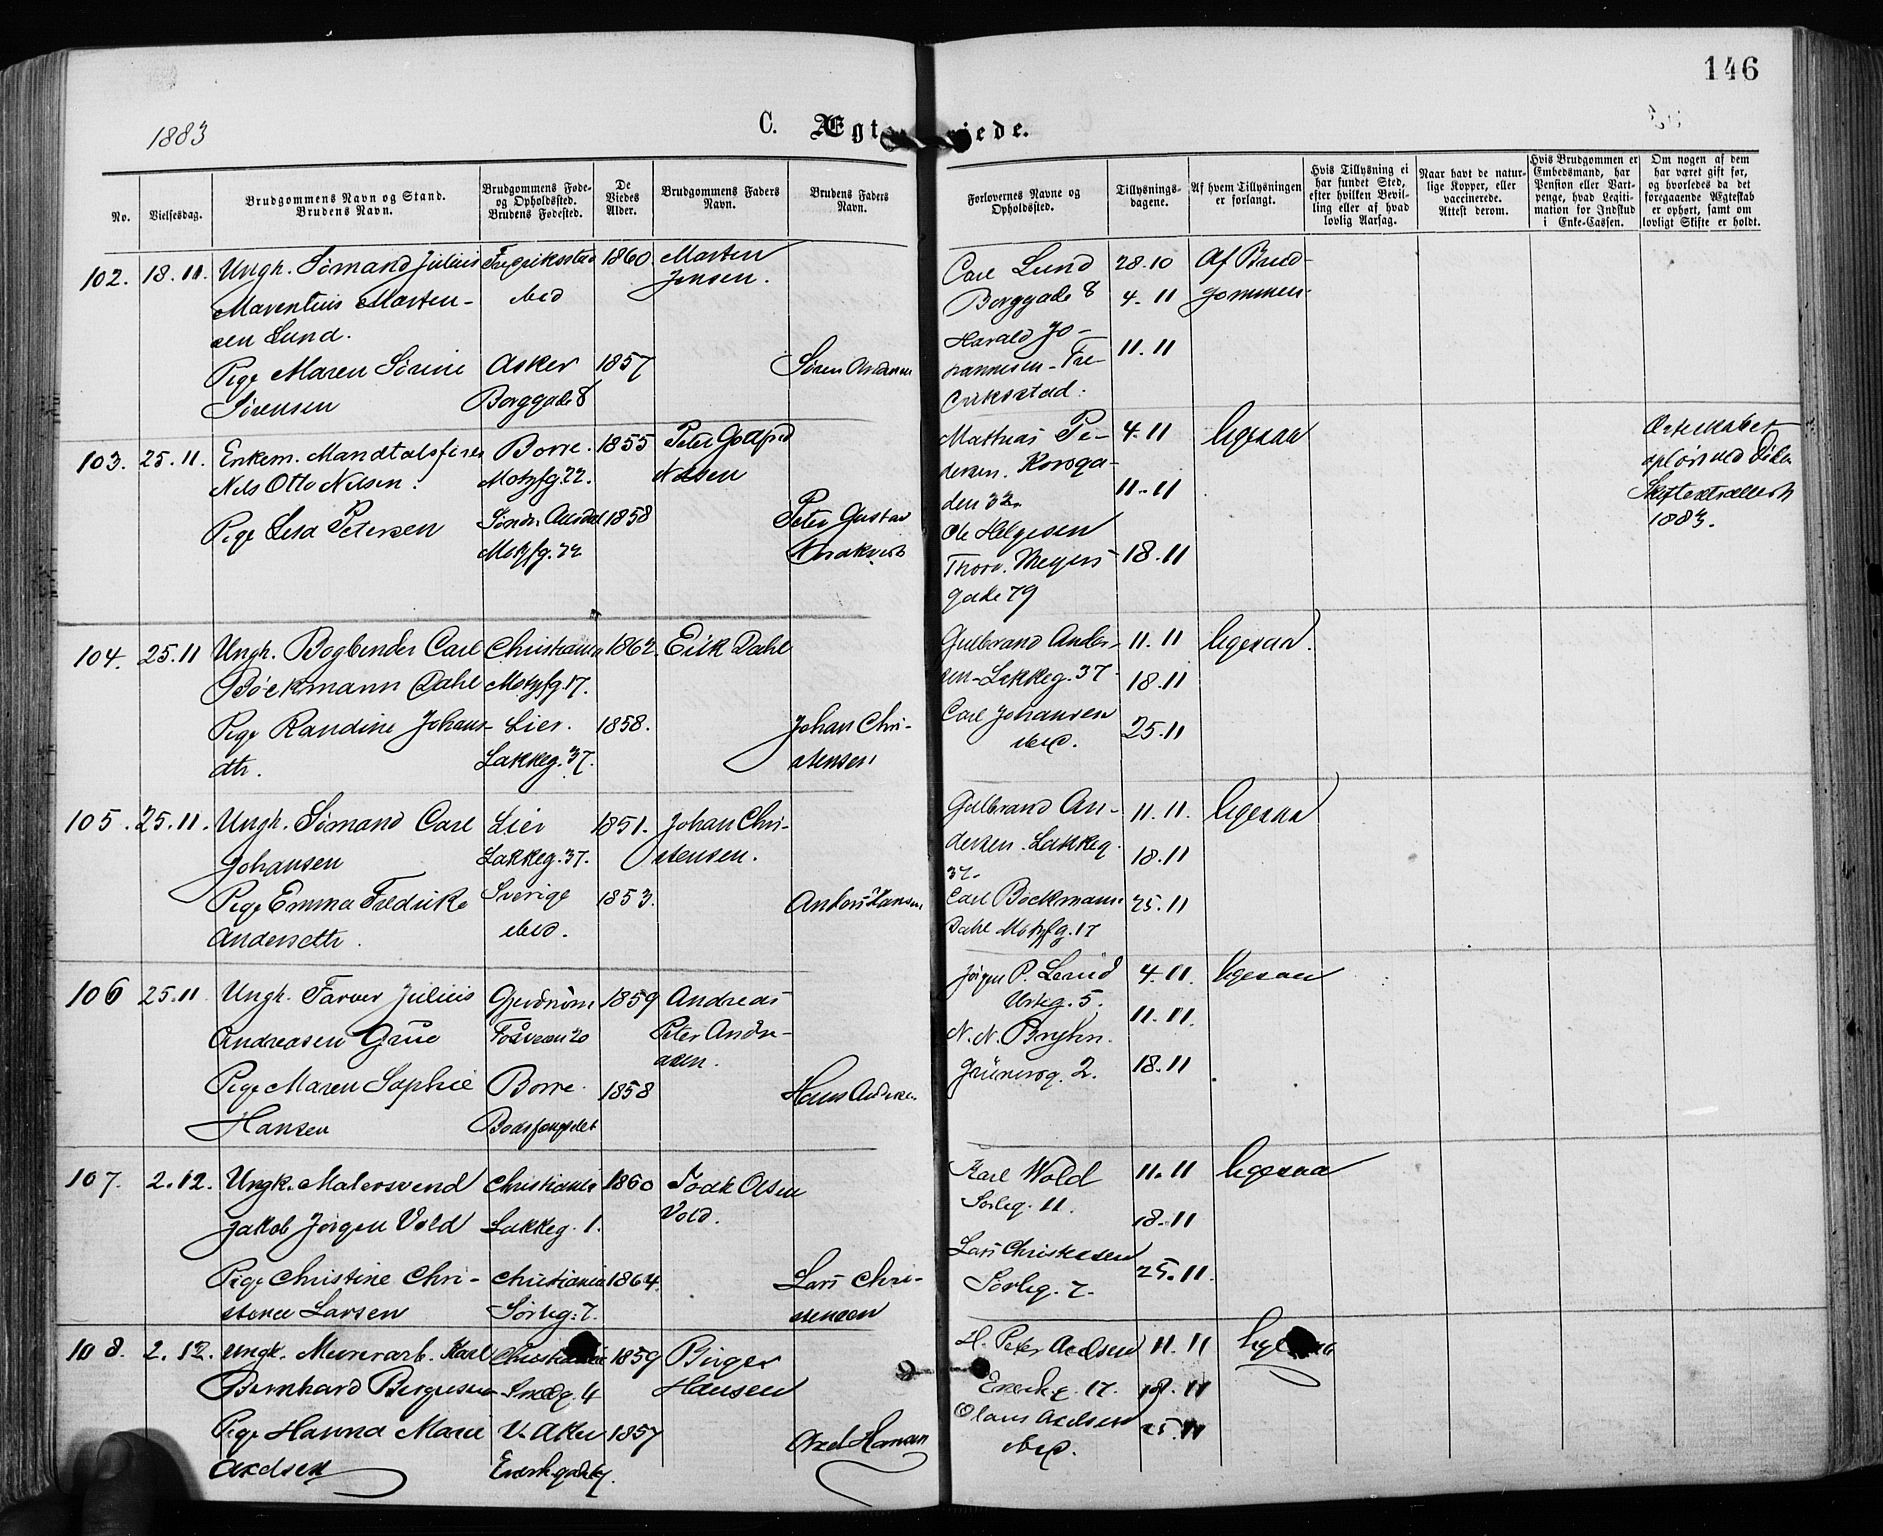 146
1883
C. Ægt jede.
No.
Vielsesdag.
Brudgommens Navn og Stand.
Brudens Navn.
Brudgommens Føde-
og Opholdssted.
Brudens Fødested.
De
Viedes
Alder.
Brudgommens Faders
Navn.
Brudens Faders
Navn.
Forlovernes Navne og
Opholdssted.
Tillysnings-
dagene.
Af hvem Tillysningen
er forlangt.
Hvis Tillysning ei
har fundet Sted,
efter hvilken Bevil-
ling eller af hvad
lovlig Aarsag.
Naar havt de natur-
lige Kopper, eller
vaccinerede.
Attest derom.
Hvis Brudgommen er
Embedsmand, har
Pension eller Vart-
penge, hvad Legiti-
mation for Indskud
i Enke-Cassen.
Om nogen af dem
har været gift før,
og hvorledes da det
foregaaende Ægteskab
er ophørt, samt om
lovligt Skifte er holdt.
102. 18.11. Ungk. Sømand Julius
Marentius Marten-
sen Lund.
Fredriksstad
ibid
1860.
Marten
Jensen.
Pige Maren Sørine
Sørensen
Asker
Borggade 8
1857
Søren
Carl Lund
Borggade 8
Harald Jo-
hannesen Fre-
driksstad.
28.10
4.11
11.11
Af Brud-
gommen.
103. 25.11. Enkem. Mandtalsfører
Nils Otto Nilsen.
Borre.
Motzfg. 22.
1855
Peter Gottfred
Nilsen
Pige Lesa Petersen
Motzfg. 22
1858
Peter Gustav
Mathias Pe-
dersen. Korsga-
den 32.
Ole Helgesen
Thorv. Meyers
gade 79
4.11
11.11
18.11
ligesaa
Ægteskabet
opløst ved Døden
1883.
104. 25.11 Ungk. Bogbinder Carl
Böckmann Dahl
Christiania
Motzfg. 17.
1862.
Erik Dahl
Pige Randine Johans-
dtr.
Lier.
Lakkeg. 37.
1858.
Johan Chri-
stensen
Gulbrand Ander-
sen Lakkeg. 37
Carl Johansen
ibid.
11.11
18.11
25.11
ligesaa.
105. 25.11. Ungk. Sømand Carl
Johansen
Lier
Lakkeg. 37.
1851.
Johan Chri-
stensen.
Pige Emma Fredrike
Andersdtr.
Sverige
ibid.
1853.
Anders Hansen
Gulbrand An-
dersen. Lakkeg.
37.
Carl Böckmann
Dahl Motzfg. 17
11.11.
18.11
25.11
ligesaa
106 25.11 Ungk. Farver Julius
Andreasen Grue
Gjerdrum
Fossveien 20
1859
Andreas
Peter Andre-
asen.
Pige Maren Sophie
Hansen
Borre.
Bodsfængslet
1858
Hans Andersen
Jörgen P. Lund
Urteg. 5.
N. N. Bryhn.
Grünersg. 2.
4.11.
11.11.
18.11
ligesaa
107. 2.12. Ungk. Malersvend
Jakob Jörgen Vold
Christiania
Lakkeg. 1.
1860
Olsen
Vold.
Pige Christine Chri-
stence Larsen
Christiania
Sørlig. 7.
1864.
Lars Chri-
stensen
Karl Wold
Sørlig. 11.
Lars Christensen
Sørlig. 7.
11.11
18.11
25.11.
ligesaa
108. 2.12. Ungk. Murerarb. Karl
Bernhard Birgersen
Christiania
Smedg. 4
1859
Birger
Hansen
Pige Hanna Marie
Axelsen
V. Aker
1857
Axel Hansen
H. Peter Axelsen
17.
Olaus Axelsen
ibid.
11.11
18.11
25.11